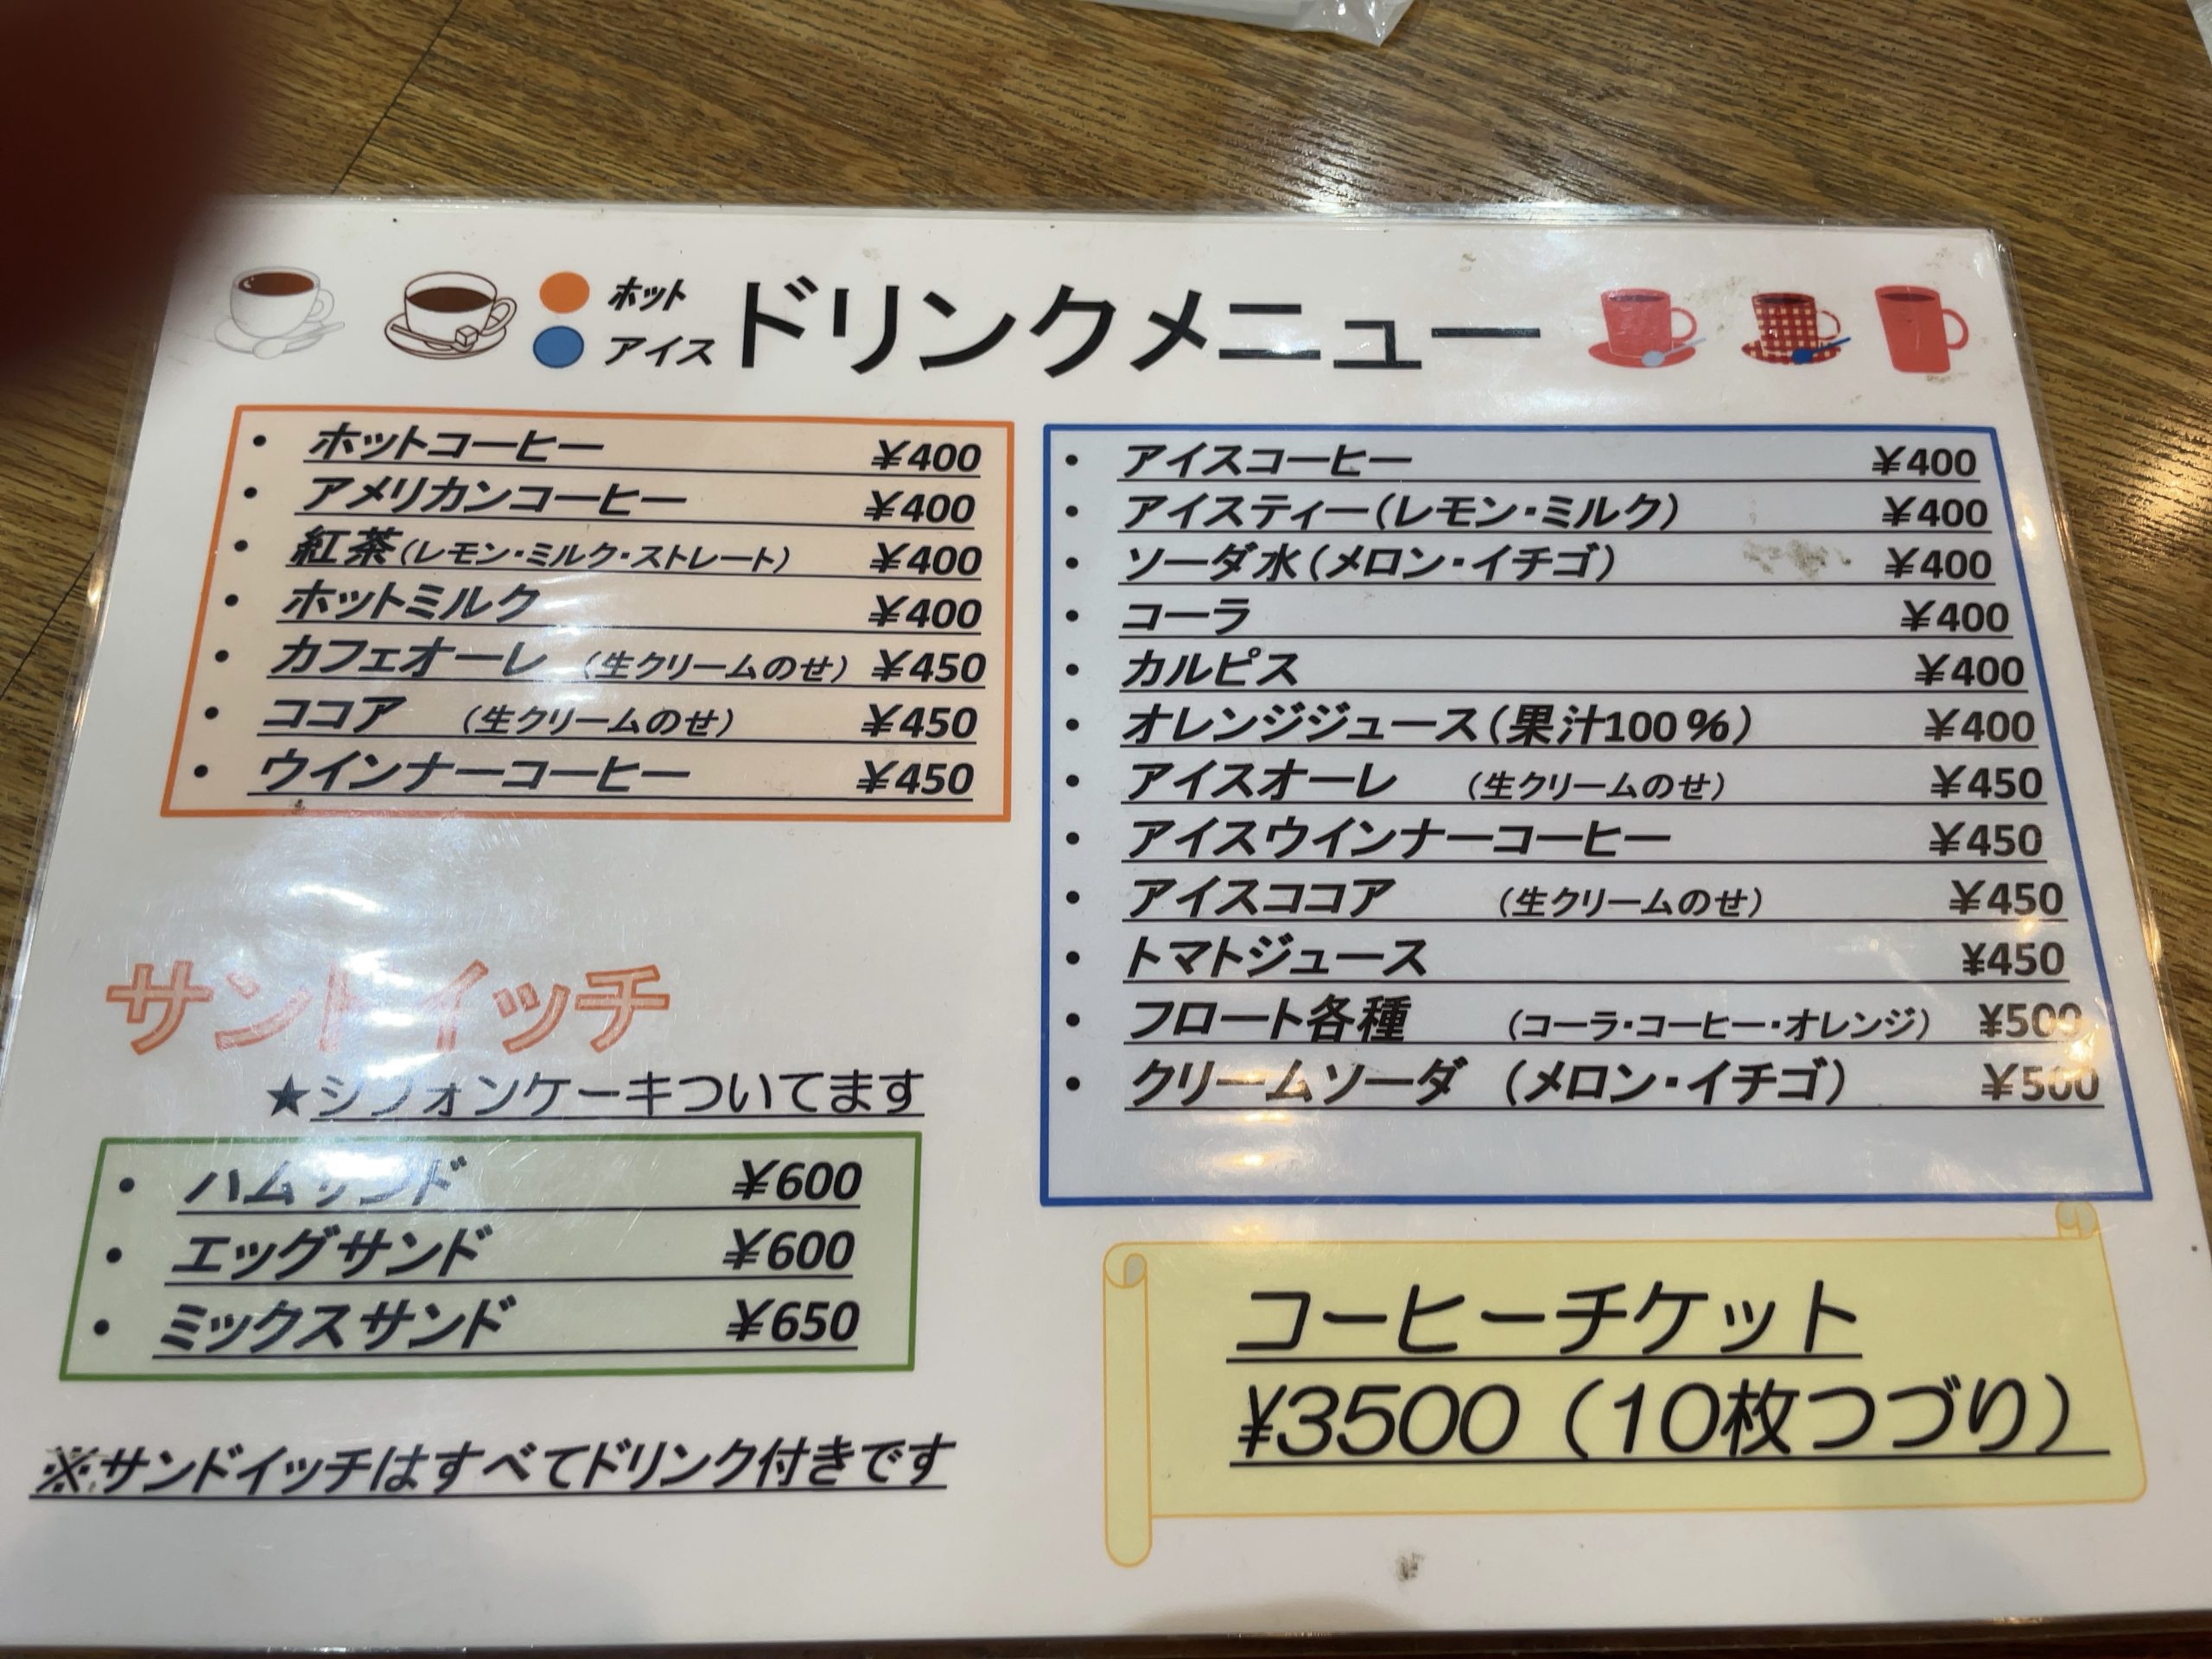 ホット
アイス
ドリンクメニュー
・ ホットコーヒー ¥400
・ アメリカンコーヒー ¥400
・ 紅茶(レモン・ミルク・ストレート) ¥400
・ ホットミルク ¥400
・ カフェオーレ (生クリームのせ) ¥450
・ ココア (生クリームのせ) ¥450
・ ウインナーコーヒー ¥450
サンドイッチ
★シフォンケーキついてます
・ ハムサンド ¥600
・ エッグサンド ¥600
・ ミックスサンド ¥650
※サンドイッチはすべてドリンク付きです
・ アイスコーヒー ¥400
・ アイスティー(レモン・ミルク) ¥400
・ ソーダ水(メロン・イチゴ) ¥400
・ コーラ ¥400
・ カルピス ¥400
・ オレンジジュース(果汁100%) ¥400
・ アイスオーレ (生クリームのせ) ¥450
・ アイスウインナーコーヒー ¥450
・ アイスココア (生クリームのせ) ¥450
・ トマトジュース ¥450
・ フロート各種 (コーラ・コーヒー・オレンジ) ¥500
・ クリームソーダ (メロン・イチゴ) ¥500
コーヒーチケット
¥3500(10枚つづり)